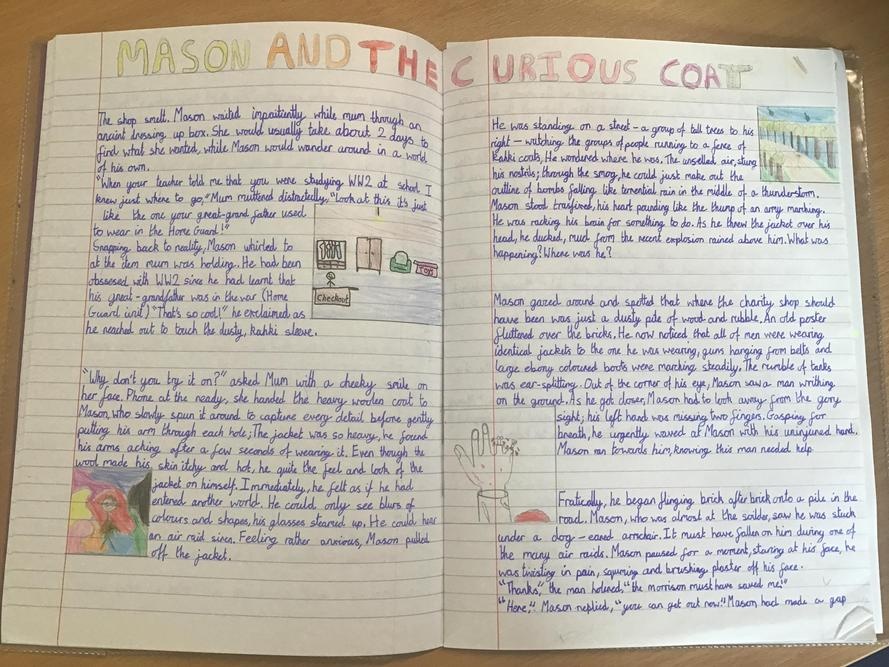 MASON AND THE CURIOUS COAT
The shop smelt. Mason waited impaitiently, while mum through an
ancaint dressing up box. She would usually take about 2 days to
find what she wanted, while Mason would wander around in a world
of his own.
"When your teacher told me that you were studying WW2 at school I
knew just where to go," Mum muttered distractedly, "Look at this it's just
like the one your great-grand father used
to wear in the Home Guard!"
Snapping back to reality, Mason whirled to
at the item mum was holding. He had been
obssesed with WW2 since he had learnt that
his great-grandfather was in the war (Home
Guard unit) "That's so cool!" he exclaimed as
he reached out to touch the dusty, kahki sleeve.
Checkout
TOYS
"Why don't you try it on?" asked Mum with a cheeky smile on
her face. Phone at the ready, she handed the heavy woolen coat to
Mason, who slowly spun it around to capture every detail before gently
putting his arm through each hole; The jacket was so heavy, he found
his arms acking after a few seconds of wearing it. Even though the
wool made his skin itchy and hot, he quite the feel and look of the
jacket on himself. Immediately, he felt as if he had
entered another world. He could only see blurs of
colours and shapes, his glasses steamed up. He could hear
an air raid siren. Feeling rather anxious, Mason pulled
off the jacket.
He was standing on a street - a group of tall trees to his
right - watching the groups of people running to a fence of
Kahki coats, He wondered where he was. The unselled air, stung
his nostrils; through the smog, he could just make out the
outline of bombs falling like torrential rain in the middle of a thunderstorm.
Mason stood trasfixed, his heart pounding like the thump of an army marching.
He was racking his brain for something to do. As he threw the jacket over his
head, he ducked, muck from the recent explosion rained above him. What was
happening? Where was he?
Mason gazed around and spotted that where the charity shop should
have been was just a dusty pile of wood and rubble. An old poster
fluttered over the bricks. He now noticed that all of men were wearing
identical jackets to the one he was wearing, guns hanging from belts and
large ebony coloured boots were marching steadily. The rumble of tanks
was ear-splitting. Out of the corner of his eye, Mason saw a man writhing
on the ground. As he got closer, Mason had to look away from the gory
sight; his left hand was missing two fingers. Gasping for
breath, he urgently waved at Mason with his uninjured hand.
Mason ran towards him, knowing this man needed help.
Fratically, he began flinging brick after brick onto a pile in the
road. Mason, who was almost at the soilder, saw he was stuck
under a dog - eared armchair. It must have fallen on him during one of
the many air raids. Mason paused for a moment, staring at his face, he
was twisting in pain, squirming and brushing plaster off his face.
"Thanks," the man holered, "the morrison must have saved me!"
"Here," Mason replied, "you can get out now." Mason had made a gap